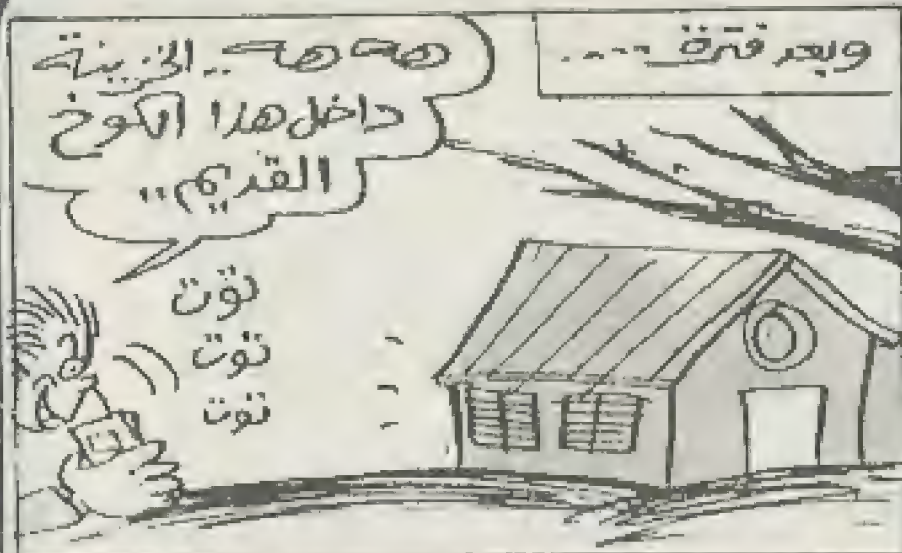 وبعد فترة ....
هه هه .. الخزينة
داخل هذا الكوخ
القديم ..
توت
توت
توت